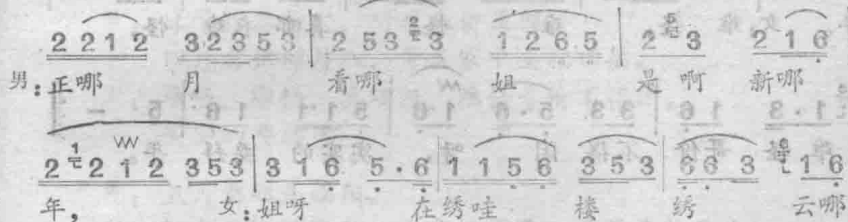 2 2 1 2 3·2 3 5 3 | 2 5 3 3 1 2 6·5 | 2 3 2 1 6
男：正哪 月 看哪 姐 是 啊 新哪
2 2 1 2 3 5 3 | 3 1 6 5·6 | 1 1 5 6 3 5 3 | 6 6 3 1 6
年， 女：姐呀 在绣哇 楼 绣 云哪